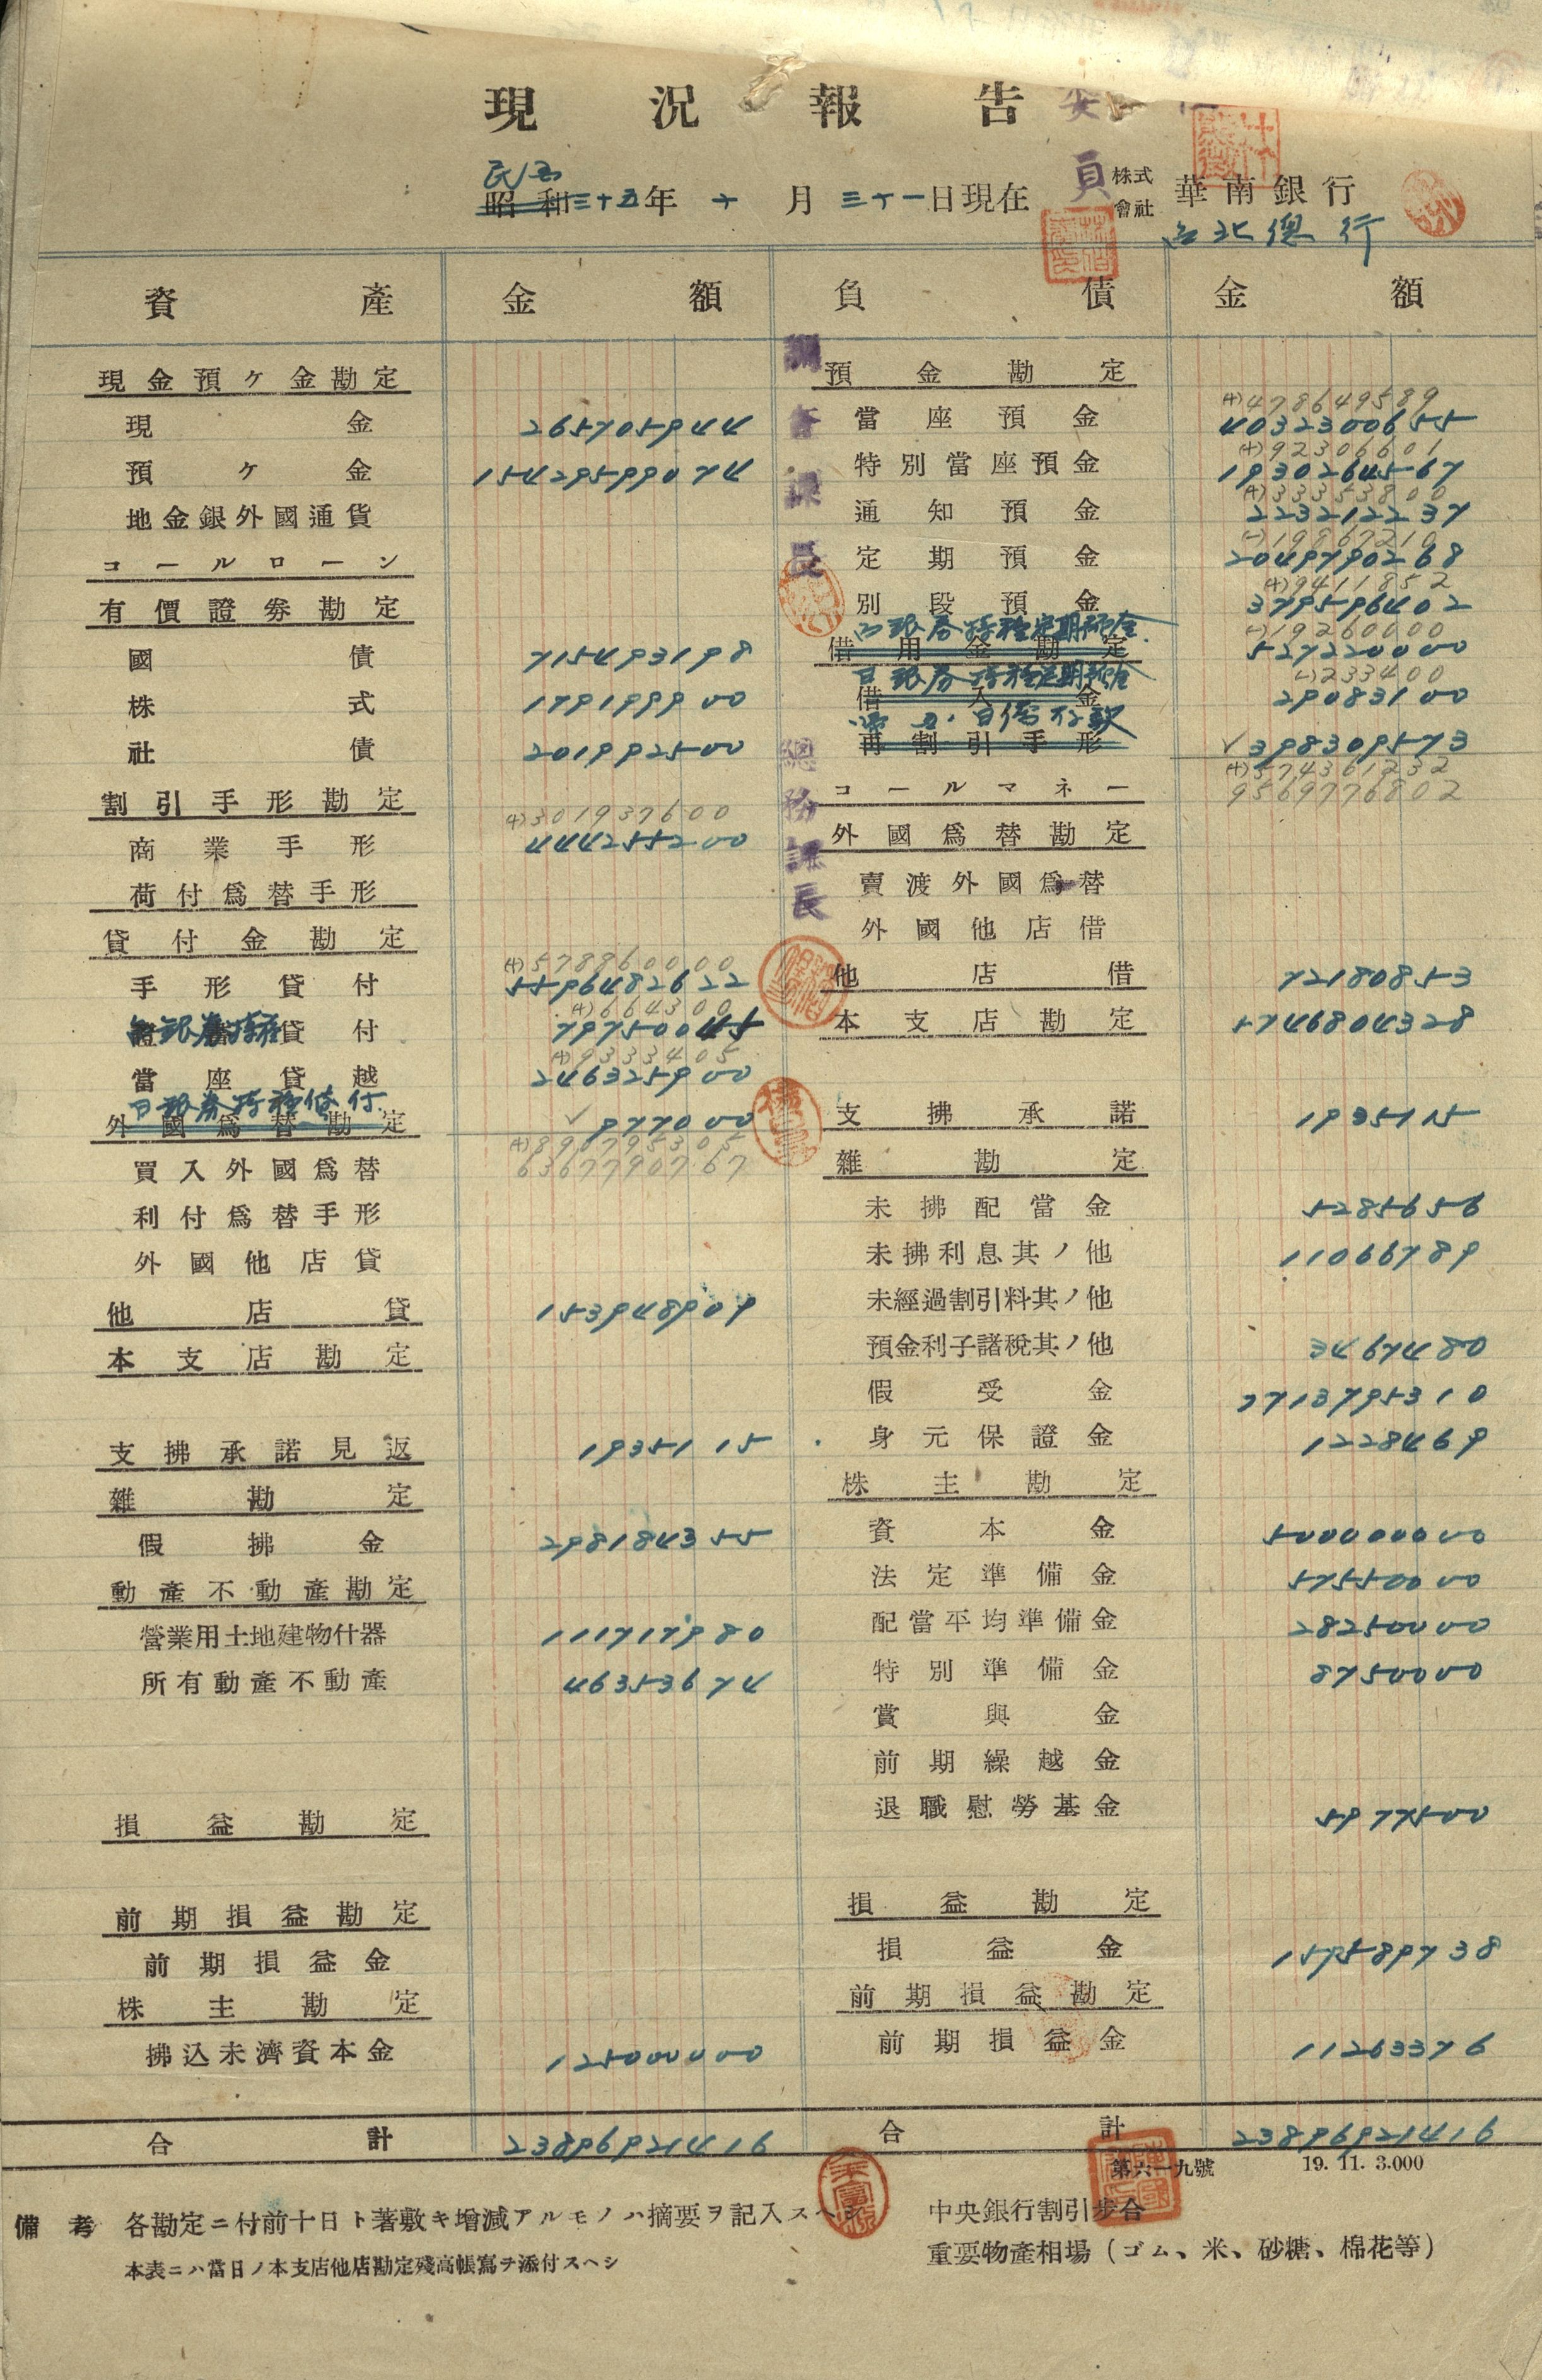 現況報告
民國
昭和三十五年 十月三十一日現在
員
株式會社 華南銀行
台北總行
資產 金額 負債 金額
調査課長
總務課長
現金預ケ金勘定
現金 265705944
預ケ金 154295999074
地金銀外國通貨
コールローン
有價證券勘定
國債 715493198
株式 179199900
社債 201992500
割引手形勘定
(+)301937600
商業手形 444255200
荷付爲替手形
貸付金勘定
(+)5788960000
手形貸付 5596482622
(+)664300
台銀券特種貸付 79750045
(+)9333405
當座貸越 246325900
日銀券特種貸付
外國爲替勘定 ✓977000
(+)890795305
6367790767
買入外國爲替
利付爲替手形
外國他店貸
他店貸 153948909
本支店勘定
支拂承諾見返 1935115
雜勘定
假拂金 298184355
動產不動產勘定
營業用土地建物什器 111717980
所有動產不動產 46353674
損益勘定
前期損益勘定
前期損益金
株主勘定
拂込未濟資本金 125000000
合計 23896921416
預金勘定
(+)478649589
當座預金 4032300655
(+)92306601
特別當座預金 1930264567
(+)33353800
通知預金 223212237
(-)19867210
定期預金 2049790268
(+)9411852
別段預金 379596402
(-)19260000
台銀券特種定期預金
借用金勘定 527220000
(-)233400
日銀券特種定期預金
借入金 29083100
日僑存款
再割引手形 ✓398309573
(+)574361232
9569776802
コールマネー
外國爲替勘定
賣渡外國爲替
外國他店借
他店借 72180853
本支店勘定 5746804328
支拂承諾 1935115
雜勘定
未拂配當金 5285656
未拂利息其ノ他 11066789
未經過割引料其ノ他
預金利子諸稅其ノ他 3467480
假受金 7713795310
身元保證金 1228469
株主勘定
資本金 500000000
法定準備金 57550000
配當平均準備金 28250000
特別準備金 8750000
賞與金
前期繰越金
退職慰勞基金 5977500
損益勘定
損益金 159589738
前期損益勘定
前期損益金 11263376
合計 23896921416
第六一九號 19. 11. 3.000
備考 各勘定ニ付前十日ト著敷キ增減アルモノハ摘要ヲ記入スヘシ
本表ニハ當日ノ本支店他店勘定殘高帳寫ヲ添付スヘシ
中央銀行割引步合
重要物產相場（ゴム、米、砂糖、棉花等）